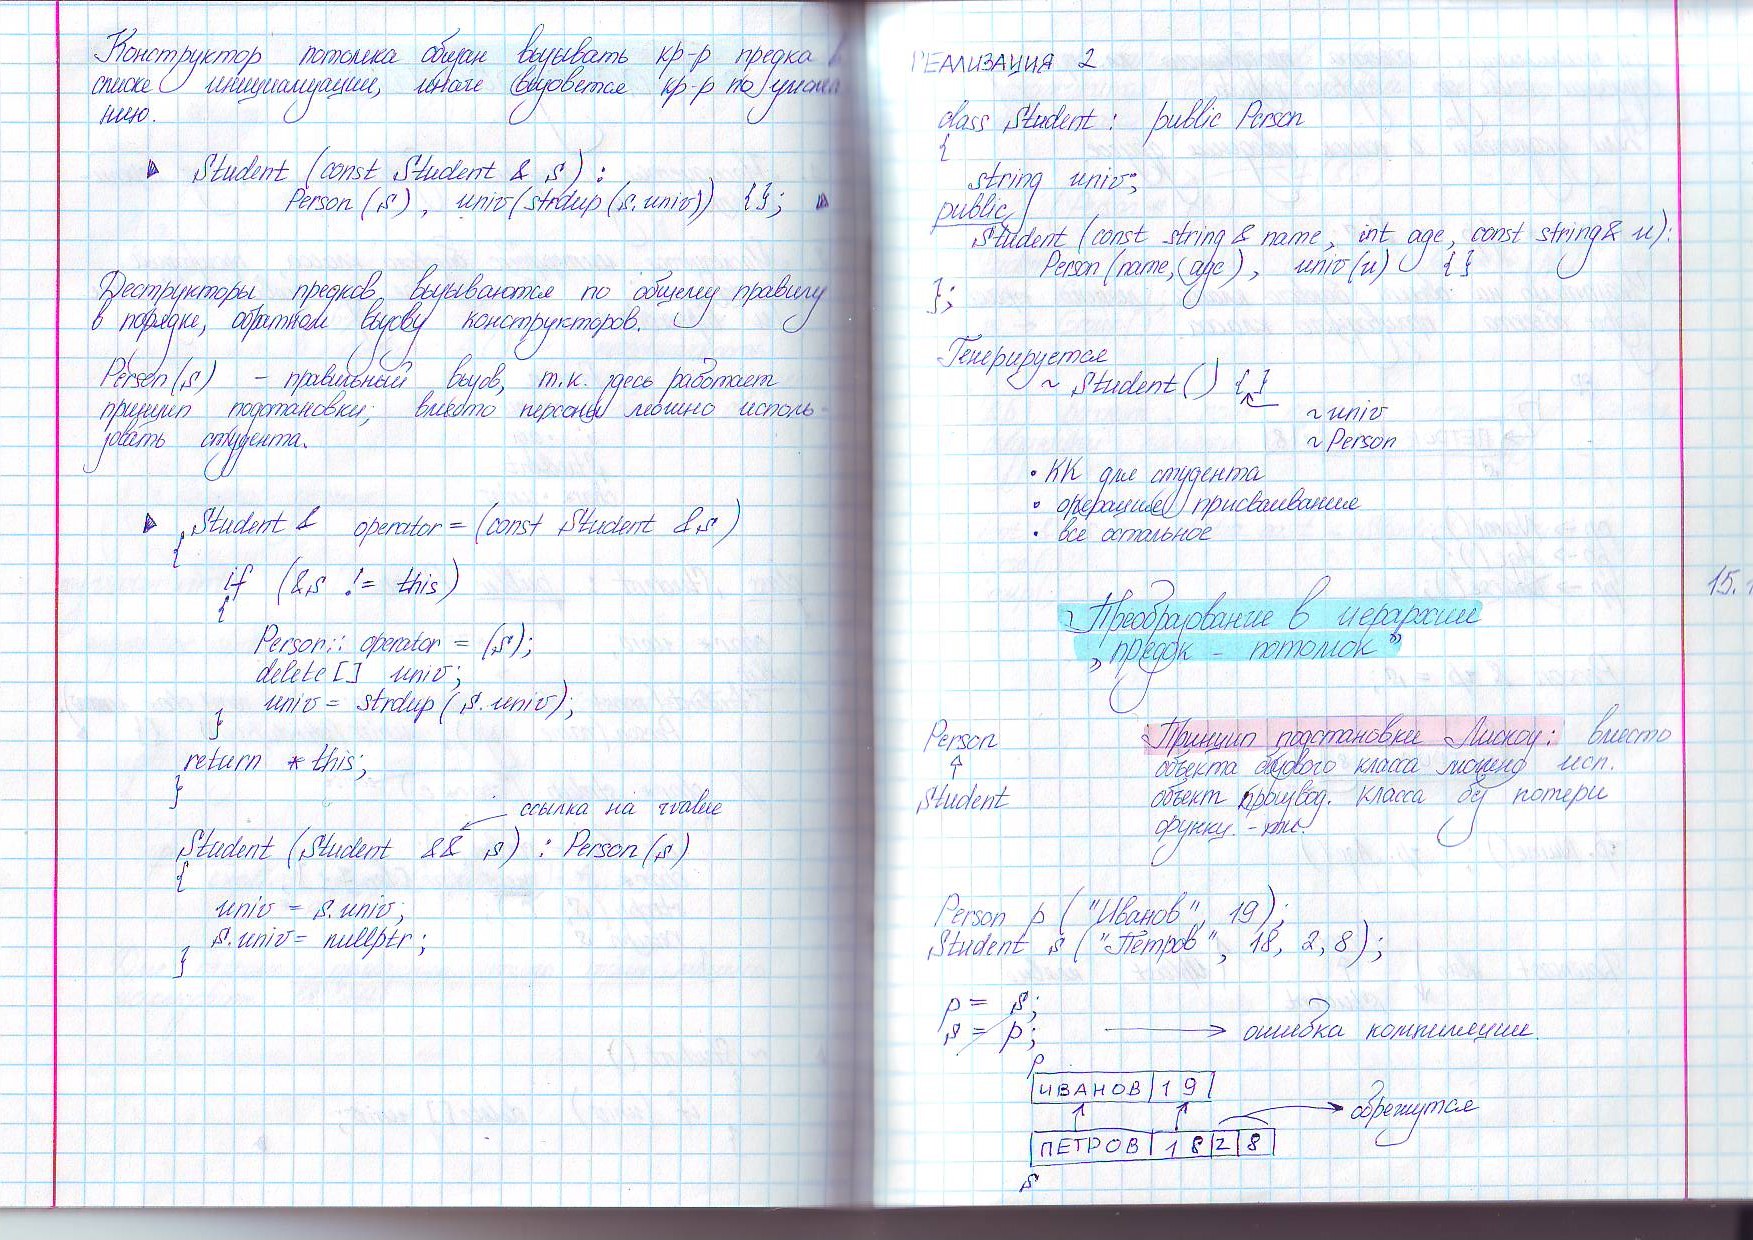 Конструктор потомка обязан вызывать кр-р предка в
списке инициализации, иначе вызовется кр-р по умолча
нию.
Student (const Student & s) :
Person(s), univ(strdup(s.univ)) {};
Деструкторы предков вызываются по общему правилу
в порядке, обратном вызову конструкторов.
Person(s) - правильный вызов, т.к. здесь работает
принцип подстановки; вместо персоны можно исполь-
зовать студента.
Student & operator = (const Student &s)
{
if (&s != this)
{
Person:: operator = (s);
delete[] univ;
univ = strdup(s.univ);
}
return *this;
}
ссылка на rvalue
Student (Student && s) : Person(s)
{
univ = s.univ;
s.univ = nullptr;
}
РЕАЛИЗАЦИЯ 2
class Student : public Person
{
string univ;
public
Student (const string & name, int age, const string & u):
Person(name, age), univ(u) {}
};
Генерируется
~ Student() {}
~univ
~Person
• КК для студента
• операцию присваивание
• все остальное
15.
Преобразование в иерархии
"предок - потомок"
Person
↑
Student
Принцип подстановки Лисков: вместо
объекта базового класса можно исп.
объект производ. класса без потери
функц.-ти.
Person p ("Иванов", 19);
Student s ("Петров", 18, 2, 8);
p = s;
s = p; → ошибка компиляции.
p
ИВАНОВ 19
обрежутся
ПЕТРОВ 18 2 8
s